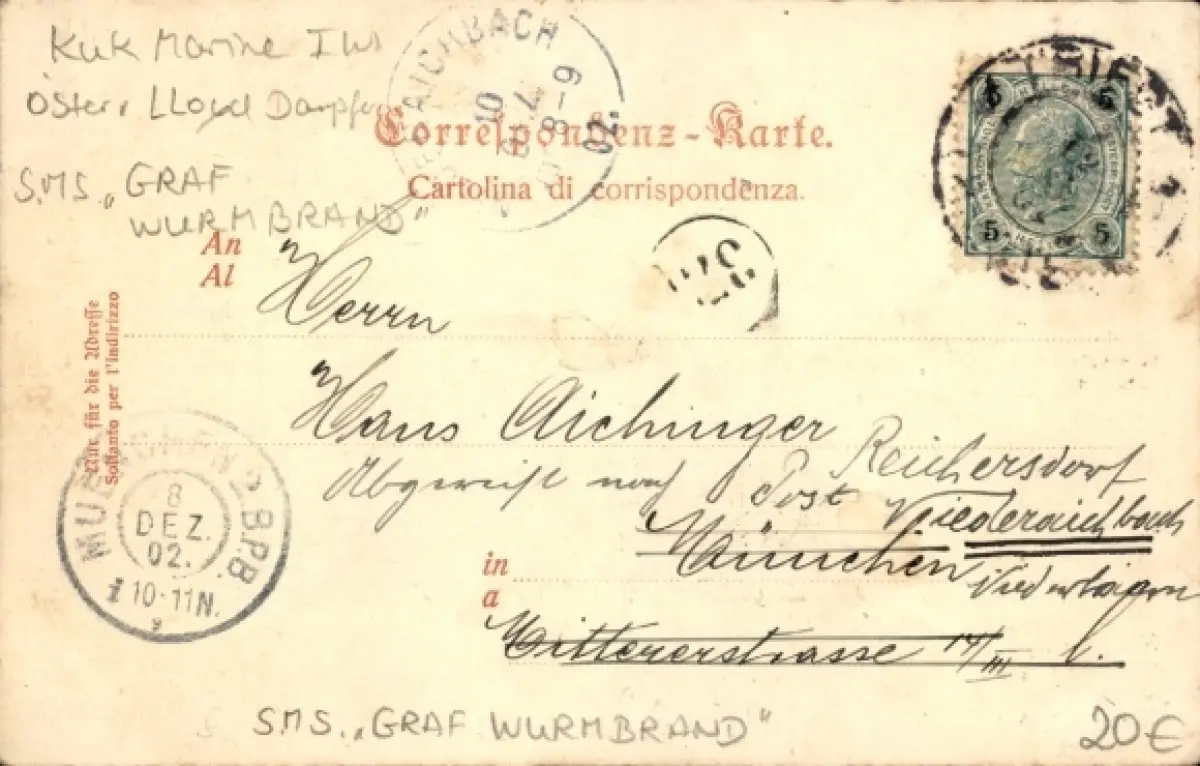 KuK Marine
Österr Lloyd Dampfer
S.M.S. „GRAF
WURMBRAND"
AICHBACH
10
8-9
02.
Correspondenz-Karte.
Cartolina di corrispondenza.
TRIEST
5 5
5 5
An
Al
Herrn
Nur für die Adresse
Soltanto per l'indirizzo
Hans Aichinger
Reichersdorf
Abgereist nach Post Niederaichbach
München
Niederbayern
in
a
Mittererstrasse 14/III l.
MUENCHEN B.P.B
8
DEZ.
02.
10-11N.
S.M.S. „GRAF WURMBRAND"
20€